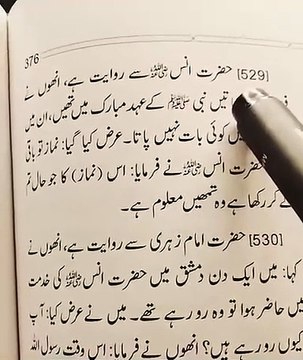 376
[529] حضرت انس رضی اللہ عنہ سے روایت ہے، انھوں نے
تیں نبی ﷺ کے عہد مبارک میں تھیں، ان میں
کوئی بات نہیں پاتا۔ عرض کیا گیا: نماز تو باقی
حضرت انس رضی اللہ عنہ نے فرمایا: اس (نماز) کا جو حال تم
نے کر رکھا ہے وہ تمھیں معلوم ہے۔
[530] حضرت امام زہری سے روایت ہے، انھوں نے
کہا: میں ایک دن دمشق میں حضرت انس رضی اللہ عنہ کی خدمت
میں حاضر ہوا تو وہ رو رہے تھے۔ میں نے عرض کیا: آپ
کیوں رو رہے ہیں؟ انھوں نے فرمایا: اس وقت رسول اللہ